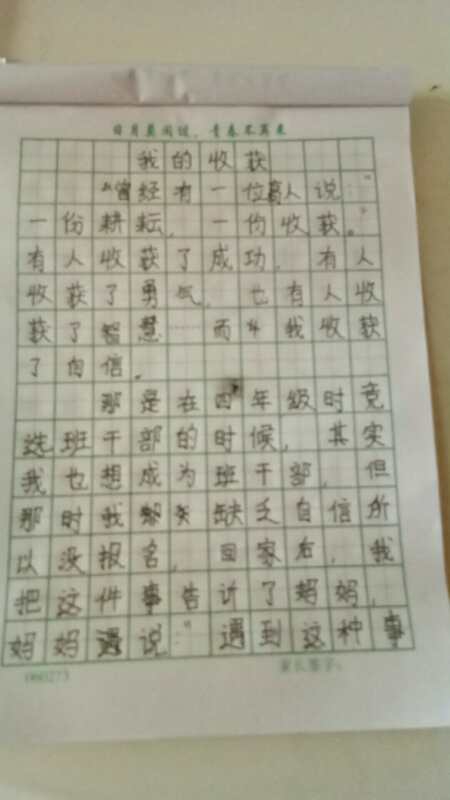 日月莫闲过，青春不再来
我的收获
"曾经有一位高人说："
一份耕耘，一份收获。"
有人收获了成功，有人
收获了勇气，也有人收
获了智慧……而我收获
了自信。
那是在四年级时竞
选班干部的时候，其实
我也想成为班干部，但
那时我缺乏自信所
以没报名，回家后，我
把这件事告讨了妈妈，
妈妈说："遇到这种事
060273
家长签字：